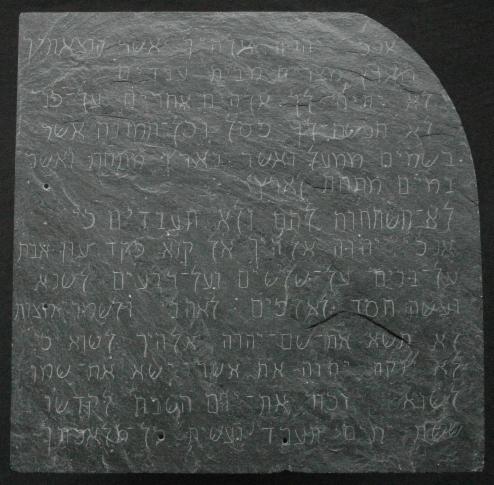 אנכי יהוה אלהיך אשר הוצאתיך
מארץ מצרים מבית עבדים
לא יהיה לך אלהים אחרים על־פני
לא תעשה לך פסל וכל־תמונה אשר
בשמים ממעל ואשר בארץ מתחת ואשר
במים מתחת לארץ
לא־תשתחוה להם ולא תעבדים כי
אנכי יהוה אלהיך אל קנא פקד עון אבת
על־בנים על־שלשים ועל־רבעים לשנא
ועשה חסד לאלפים לאהבי ולשמרי
לא תשא את־שם־יהוה אלהיך לשוא כי
לא ינקה יהוה את אשר־ישא את־שמו
לשוא זכור את־יום השבת לקדשו
ששת ימים תעבד ועשית כל־מלאכתך